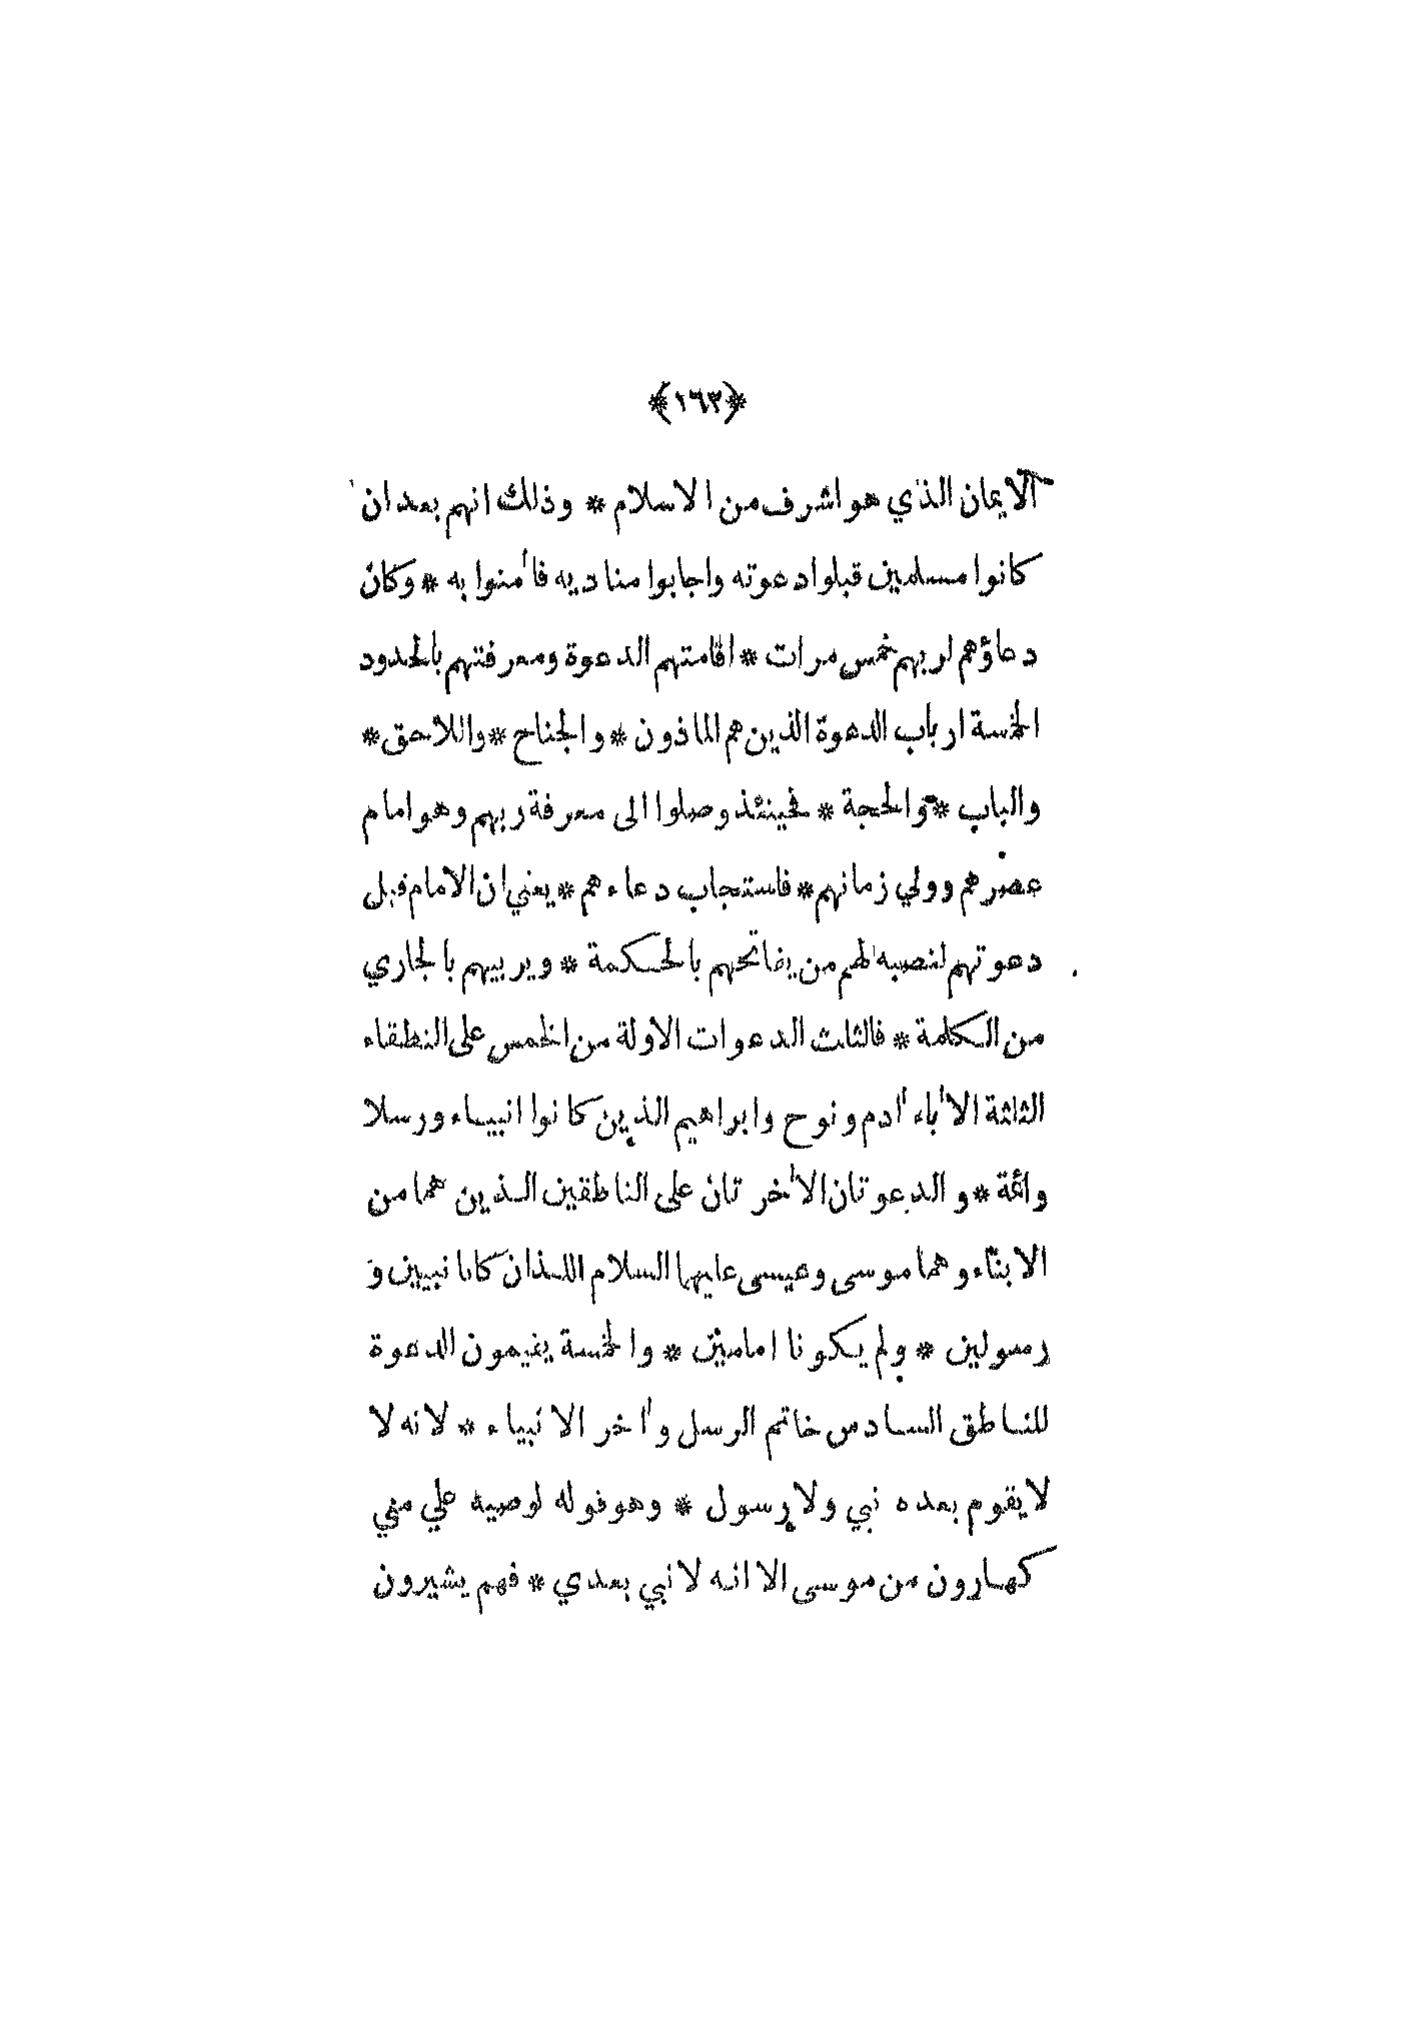 ﴿١٦٣﴾
الايمان الذي هو اشرف من الاسلام * وذلك انهم بعد ان
كانوا مسلمين قبلوا دعوته واجابوا مناديه فاأمنوا به * وكان
دعاؤهم لربهم خمس مرات * اقامتهم الدعوة ومعرفتهم بالحدود
الخمسة ارباب الدعوة الذين هم الماذون * والجناح * واللاحق *
والباب * والحجة * فحينئذ وصلوا الى معرفة ربهم وهو امام
عصرهم وولي زمانهم * فاستجاب دعاءهم * يعني ان الامام قبل
دعوتهم لنصبه لهم من يفاتحهم بالحكمة * ويربيهم بالجاري
من الكلمة * فالثلث الدعوات الاولة من الخمس على النطقاء
الثلثة الاأباء اأدم ونوح وابراهيم الذين كانوا انبياء ورسلا
وائمة * والدعوتان الاأخرتان على الناطقين الذين هما من
الابناء وهما موسى وعيسى عليهما السلام اللذان كانا نبيين و
رسولين * ولم يكونا امامين * والخمسة يقيمون الدعوة
للناطق السادس خاتم الرسل واأخر الانبياء * لانه لا
لا يقوم بعده نبي ولا رسول * وهو قوله لوصيه علي مني
كهارون من موسى الا انه لا نبي بعدي * فهم يشيرون